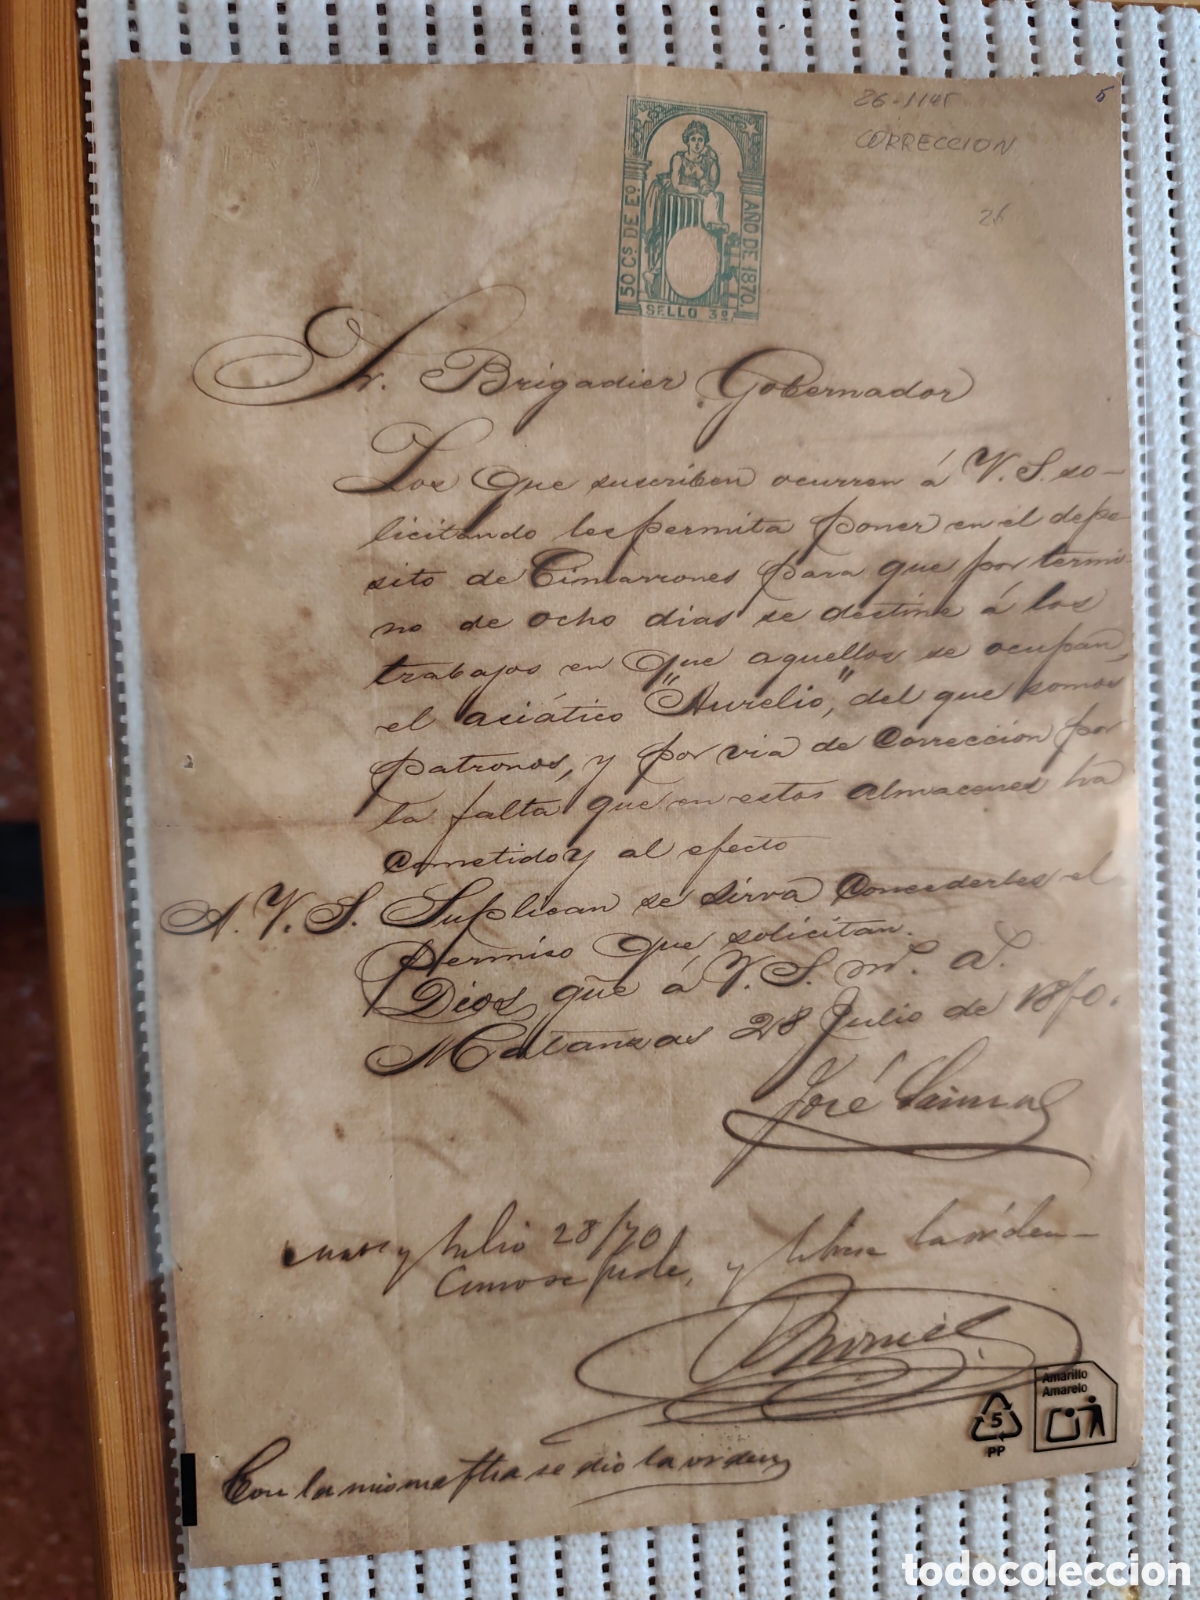 CORRECCION
5
26
50 Cs DE Eo
AÑO DE 1870.
SELLO 3º
Sr. Brigadier Gobernador
Los que suscriben ocurren á V. S. so-
licitando les permita poner en el depo-
sito de Cimarrones para que por termi-
no de ocho dias se destine á los
trabajos en que aquellos se ocupan,
el asiático "Aurelio", del que somos
patronos, y por via de Corrección por
la falta que en estos almacenes ha
Cometido y al efecto
A. V. S. Suplican se sirva Concederles el
Permiso que solicitan.
Dios gue á V. S. m. a.
Matanzas 28 Julio de 1870.
José
Julio 28/70
Como se pide, y la orden
Con la misma fha se dio la orden
Amarillo
Amarelo
5
PP
todocoleccion